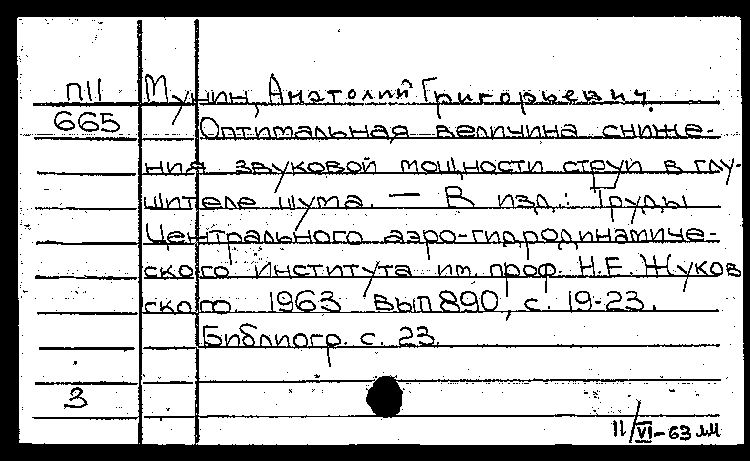 П11 Мунин, Анатолий Григорьевич.
665 Оптимальная величина сниже-
ния звуковой мощности струи в глу-
шителе шума. — В изд.: Труды
Центрального аэро-гидродинамиче-
ского института им. проф. Н.Е. Жуков
ского. 1963 вып 890, с. 19-23.
Библиогр. с. 23.
3
11/VI-63 мм